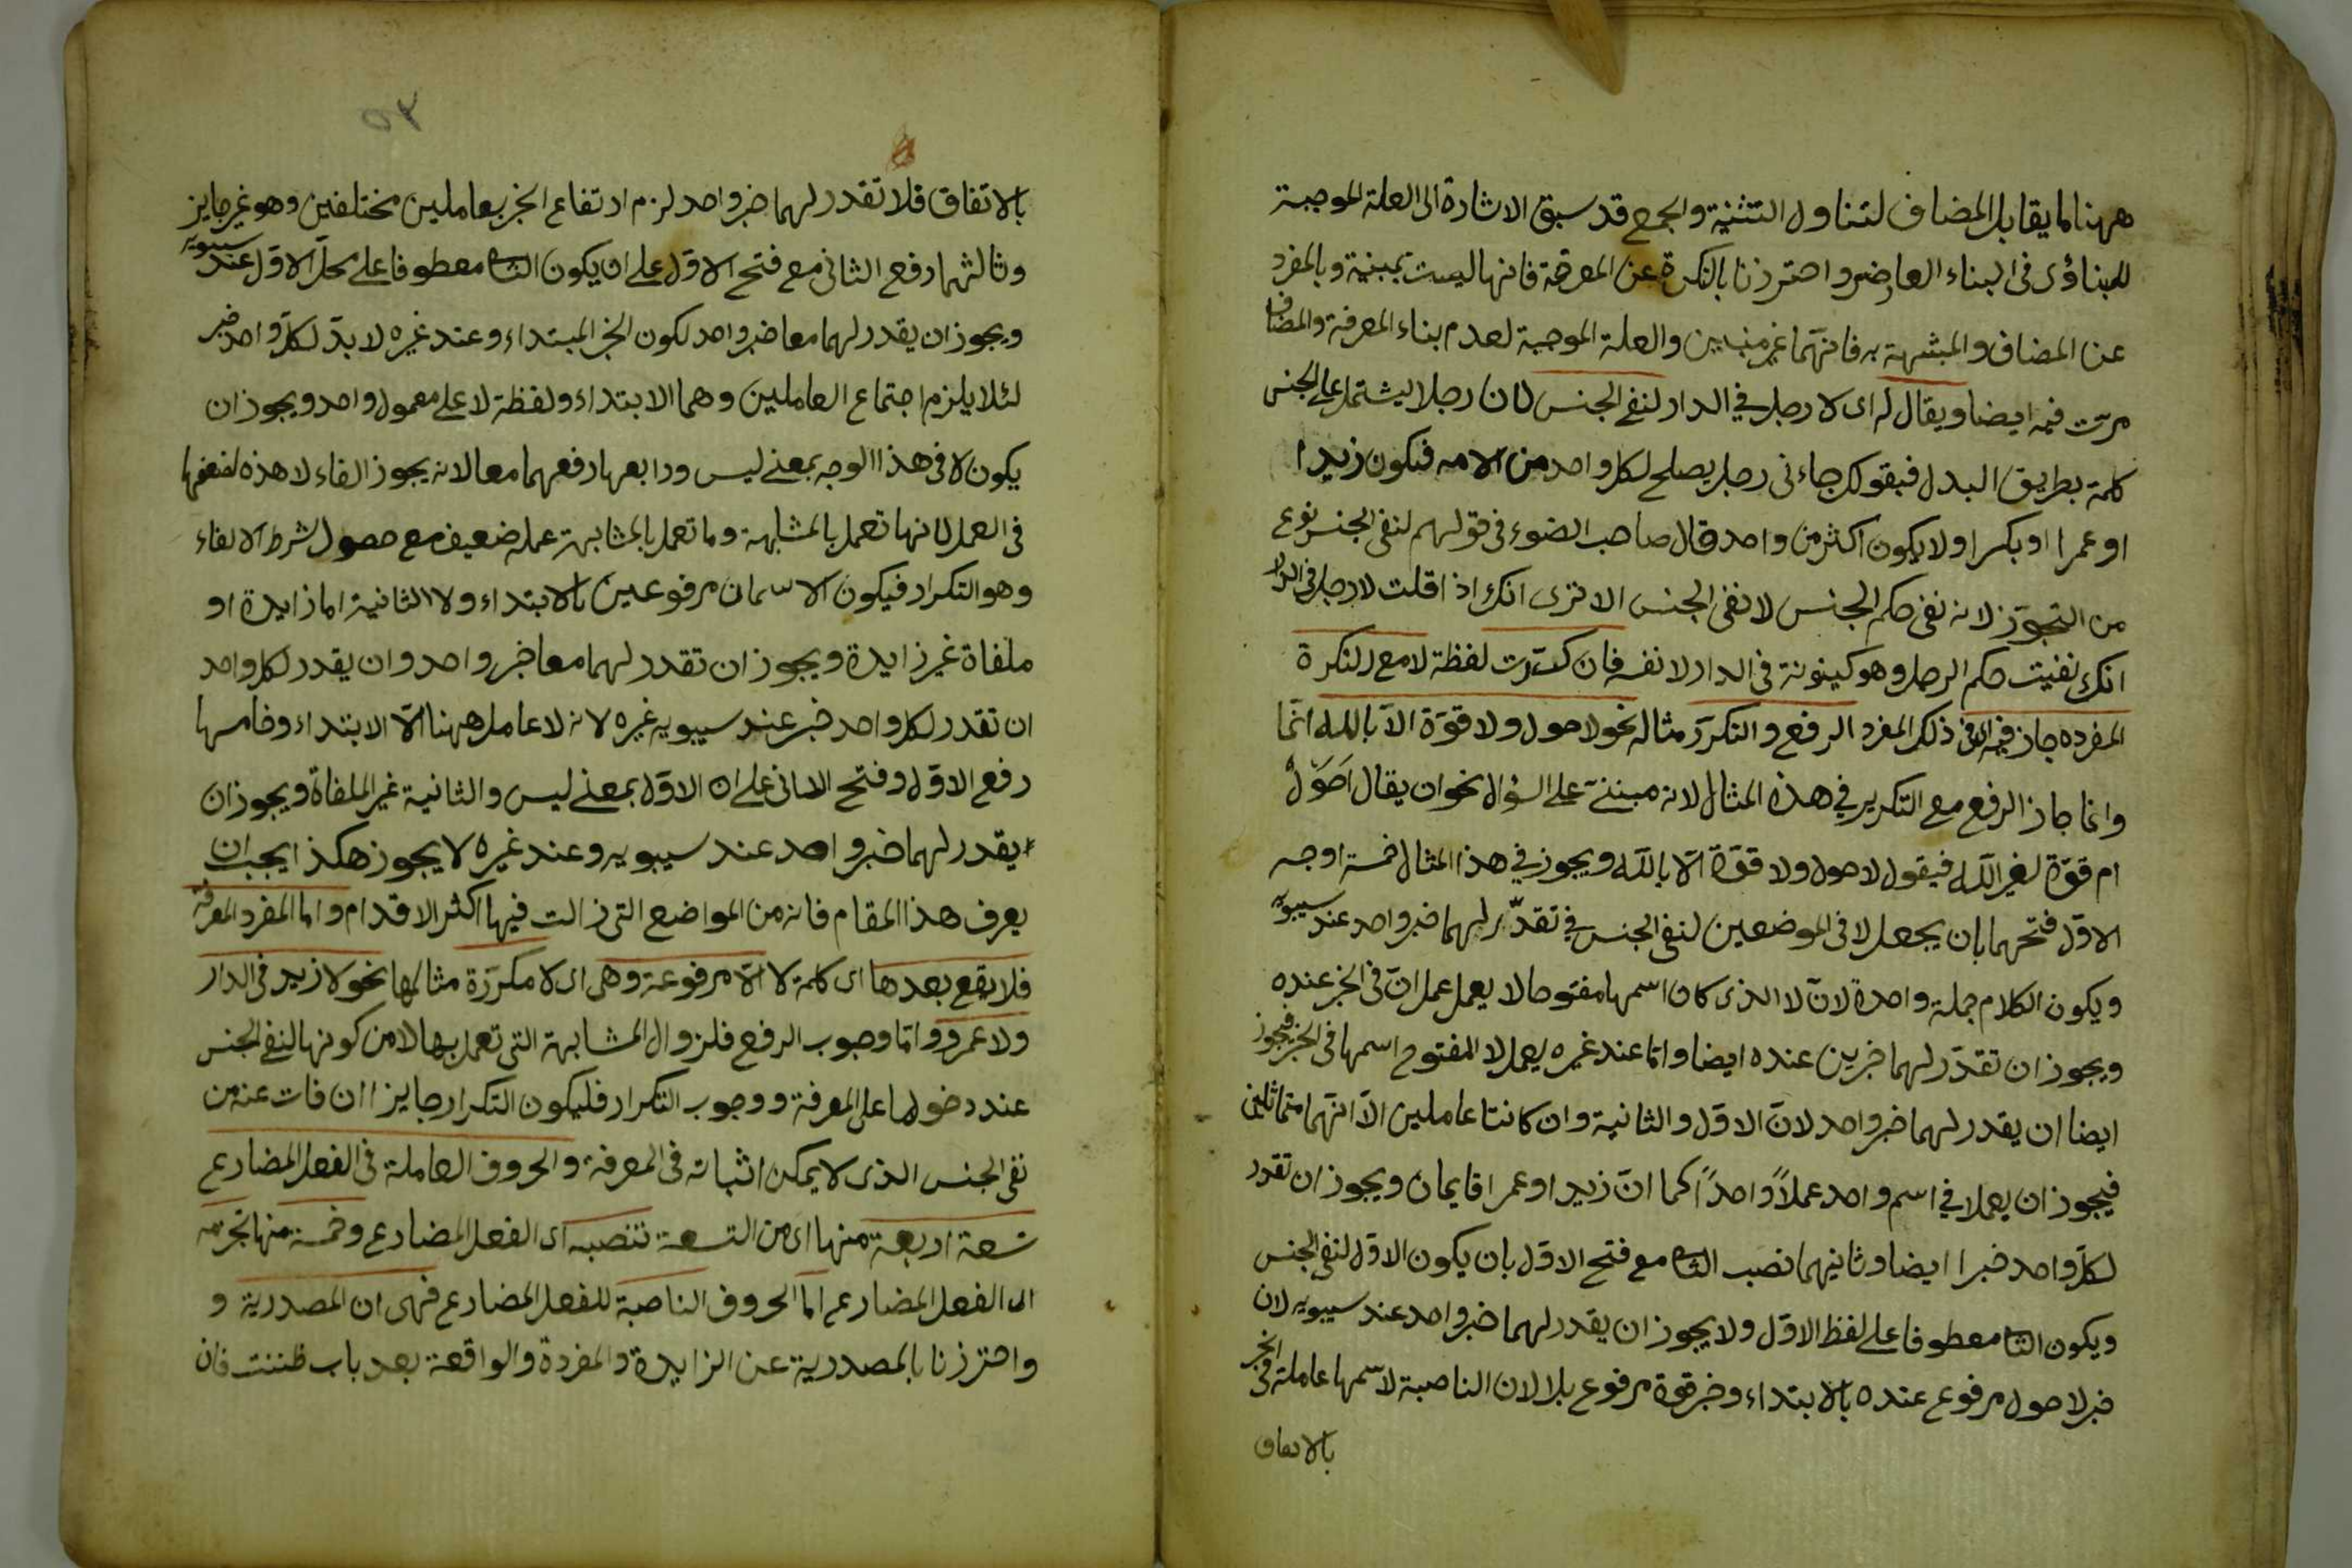 ههنا ما يقابل المضاف لتناول التثنية والجمع قد سبق الاشارة الى العلة الموجبة
للبناؤى فى البناء العارضى واحترزنا بالنكرة عن المعرفة فانها ليست بمبنية وبالمفرد
عن المضاف والمشبهة به فانهما غير مبنيين والعلة الموجبة لعدم بناء المعرفة والمضاف
مرّت فيه ايضا ويقال له اى لا رجل في الدار لنفى الجنس لان رجلا ليشتمل على الجنس
كلمة بطريق البدل فيقولك جاءنى رجل يصلح لكل واحد من الامه فيكون زيدا
او عمرا او بكرا ولا يكون اكثر من واحد قال صاحب الضوء فى قولهم لنفى الجنس نوع
من التجوّز لانه نفى حكم الجنس لا نفى الجنس الا ترى انك اذا قلت لا رجل فى الدار
انك نفيت حكم الرجل وهو كينونة فى الدار لا نفسه فان كرّرت لفظة لا مع النكرة
المفرده جاز فيه الى فى ذلك المفرد الرفع والتكرّر مثاله نحو لا حول ولا قوّة الّا بالله انّما
وانما جاز الرفع مع التكرير في هذه المثال لانه مبننىّ على السؤال نحو ان يقال احَوَلٌ
ام قوّة لغير اللّه فيقول لا حول ولا قوّة الّا باللّه ويجوز في هذا المثال خمسة اوجه
الاوّل فتحهما بان يجعل لا فى الموضعين لنفى الجنس في تقدّر لهما خبر واحد عند سيبويه
ويكون الكلام جملة واحدة لانّ لا الذى كان اسمها مفتوحا لا يعمل عمل انّ فى الخبر عنده
ويجوز ان تقدّر لهما خبرين عنده ايضا وامّا عند غيره يعمل لا المفتوح اسمها فى الخبر فيجوز
ايضا ان يقدر لهما خبر واحد لانّ الاوّل والثانية وان كانتا عاملين الّا انّهما متماثلين
فيجوز ان يعملا في اسم واحد عملاً واحداً كما انّ زيدا وعمرا قايمان ويجوز ان تقدر
لكلّ واحد خبرا ايضا وثانيهما نصب الثانى مع فتح الاوّل بان يكون الاوّل لنفى الجنس
ويكون الثانى معطوفا على لفظ الاوّل ولا يجوز ان يقدر لهما خبر واحد عند سيبويه لان
خبر لا حول مرفوع عنده بالابتداء وخبر قوة مرفوع بلا لان الناصبة لاسمها عاملة فى الخبر
بالاتفاق
٥٢
بالاتفاق فلا تقدر لهما خبر واحد لزم ارتفاع الخبر بعاملين مختلفين وهو غير جايز
وثالثهما رفع الثانى مع فتح الاوّل على ان يكون الثانى معطوفا على محلّ الاوّل عند سيبويه
ويجوز ان يقدر لهما معا خبر واحد لكون الخبر المبتداء وعند غيره لا بدّ لكلّ واحد خبر
لئلا يلزم اجتماع العاملين وهما الابتداء ولفظة لا على معمول واحد ويجوز ان
يكون لا فى هذا الوجه بمعنى ليس ورابعها رفعهما معا لانه يجوز الغاء لا هذه لضعفها
فى العمل لانها تعمل بالمشابهة وما تعمل بالمشابهة عمله ضعيف مع حصول شرط الالغاء
وهو التكرار فيكون الاسمان مرفوعين بالابتداء ولا الثانية اما زايدة او
ملغاة غير زايدة ويجوز ان تقدر لهما معا خبر واحد وان يقدر لكل واحد
ان تقدر لكل واحد خبر عند سيبويه غيره لانه لا عامل ههنا الّا الابتداء وخامسها
رفع الاوّل وفتح الثانى على ان الاوّل بمعنى ليس والثانية غير الملغاة ويجوز ان
يقدر لهما خبر واحد عند سيبويه وعند غيره لا يجوز هكذا يجب ان
يعرف هذا المقام فانه من المواضع التى زالت فيها اكثر الاقدام واما المفرد المعرفة
فلا يقع بعدها اى كلمة لا الّا مرفوعة وهى اى لا مكرّرة مثالها نحو لا زيد فى الدار
ولا عمرو وامّا وجوب الرفع فلزوال المشابهة التى تعمل بها لا من كونها لنفى الجنس
عند دخولها على المعرفة ووجوب التكرار فليكون التكرار جايزا ان فات عنه من
نفى الجنس الذى لا يمكن اثباته فى المعرفة والحروف العاملة فى الفعل المضارع
تسعة اربعة منها اى من التسعة تنصبه اى الفعل المضارع وخمسة منها تجزمه
اى الفعل المضارع اما الحروف الناصبة للفعل المضارع فهى ان المصدرية و
واحترزنا بالمصدرية عن الزايدة والمفردة والواقعة بعد باب ظننت فان